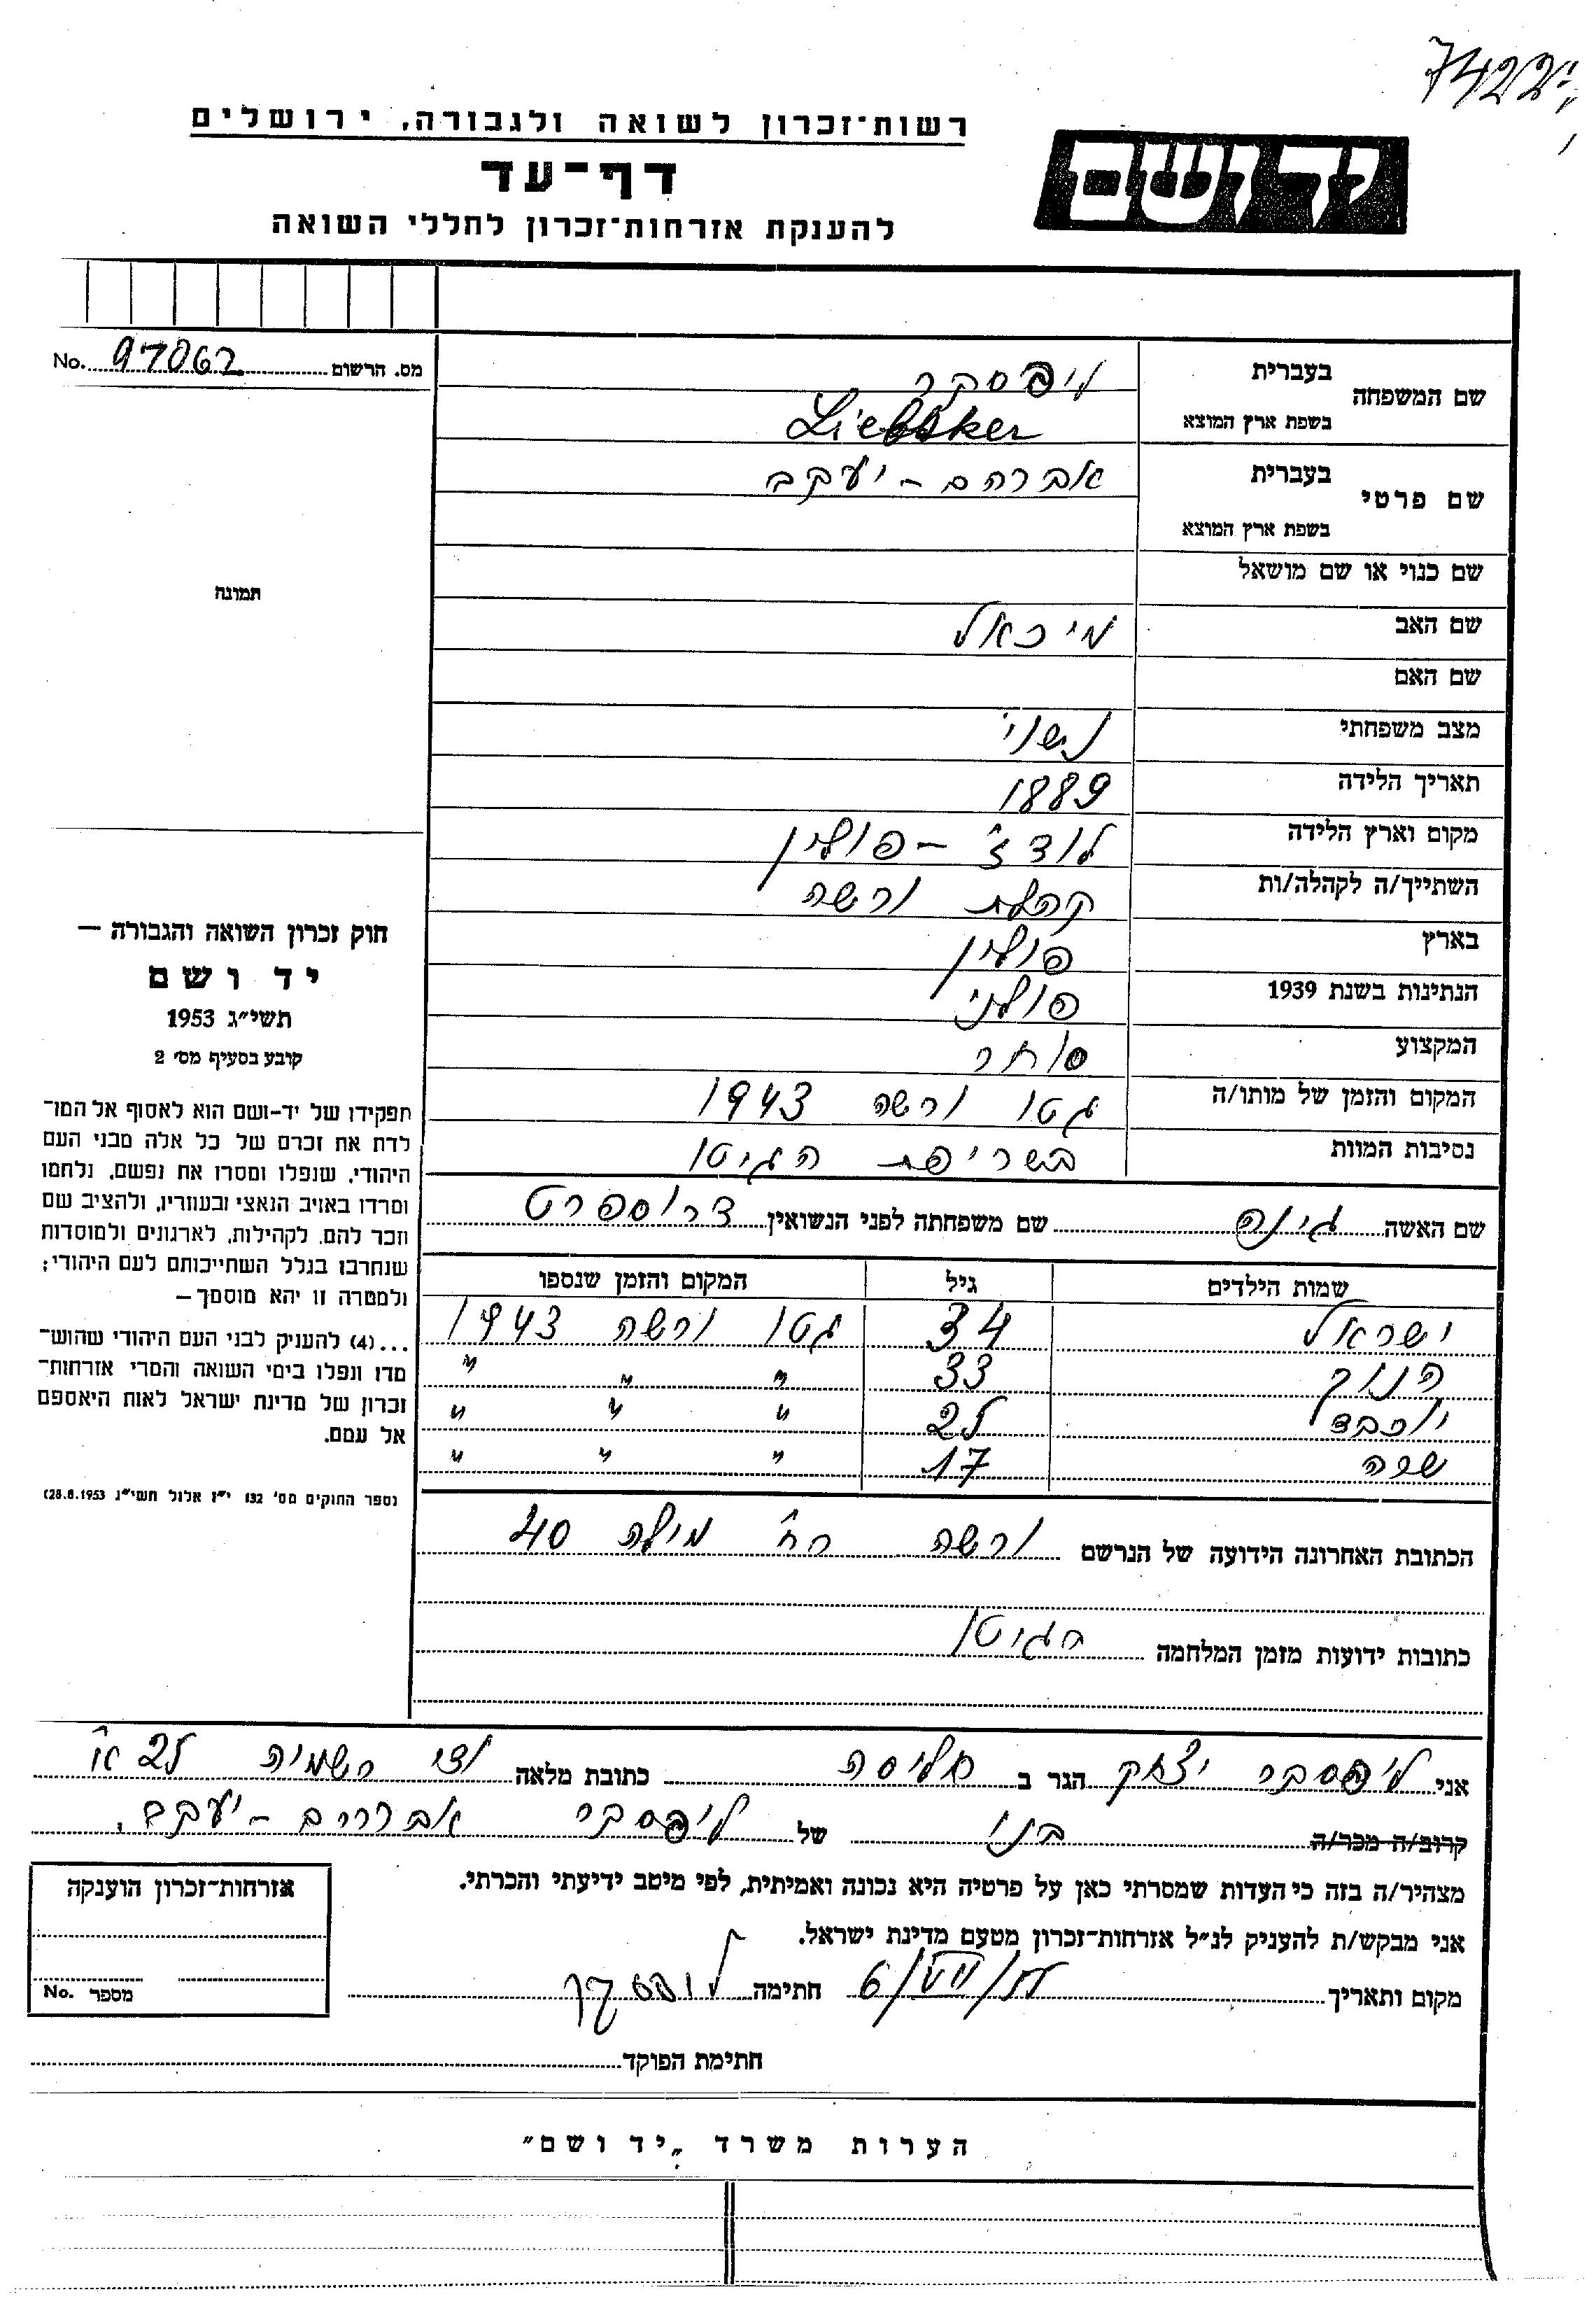 7422
רשות־זכרון לשואה ולגבורה, ירושלים
יד ושם
דף־עד
להענקת אזרחות־זכרון לחללי השואה
מס. הרשום 97062 No.
שם המשפחה
בעברית ליפסקר
בשפת ארץ המוצא
שם פרטי
בעברית אברהם - יעקב
בשפת ארץ המוצא
שם כנוי או שם מושאל
שם האב מיכאל
שם האם
מצב משפחתי נשוי
תאריך הלידה 1889
מקום וארץ הלידה לודז' - פולין
השתייך/ה לקהלה/ות קהלת ורשה
בארץ פולין
הנתינות בשנת 1939 פולני
המקצוע סוחר
המקום והזמן של מותו/ה גטו ורשה 1943
נסיבות המוות בשריפת הגיטו
שם האשה גינה שם משפחתה לפני הנשואין
שמות הילדים גיל המקום והזמן שנספו
ישראל 34 גטו ורשה 1943
חנוך 33 " " "
יוכבד 25 " " "
שרה 17 " " "
הכתובת האחרונה הידועה של הנרשם ורשה רח' מילה 40
כתובות ידועות מזמן המלחמה הגיטו
תמונה
חוק זכרון השואה והגבורה —
יד ושם
תשי״ג 1953
קובע בסעיף מס׳ 2
תפקידו של יד-ושם הוא לאסוף אל המו־
לדת את זכרם של כל אלה מבני העם
היהודי, שנפלו ומסרו את נפשם, נלחמו
ומרדו באויב הנאצי ובעוזריו, ולהציב שם
וזכר להם, לקהילות, לארגונים ולמוסדות
שנחרבו בגלל השתייכותם לעם היהודי;
ולמטרה זו יהא מוסמך—
...(4) להעניק לבני העם היהודי שהוש־
מדו ונפלו בימי השואה והמרי אזרחות־
זכרון של מדינת ישראל לאות היאספם
אל עמם.
(ספר החוקים מס׳ 132 י״ז אלול תשי״ג 28.8.1953)
אני ליפסקר יצחק הגר ב חליסה כתובת מלאה ואדי רשמיה 25 א'
קרוב/ה מכר/ה בנו של ליפסקר אברהם - יעקב.
מצהיר/ה בזה כי העדות שמסרתי כאן על פרטיה היא נכונה ואמיתית, לפי מיטב ידיעתי והכרתי.
אני מבקש/ת להעניק לנ״ל אזרחות־זכרון מטעם מדינת ישראל.
מקום ותאריך חתימה
חתימת הפוקד
אזרחות־זכרון הוענקה
מספר No.
הערות משרד „יד ושם״